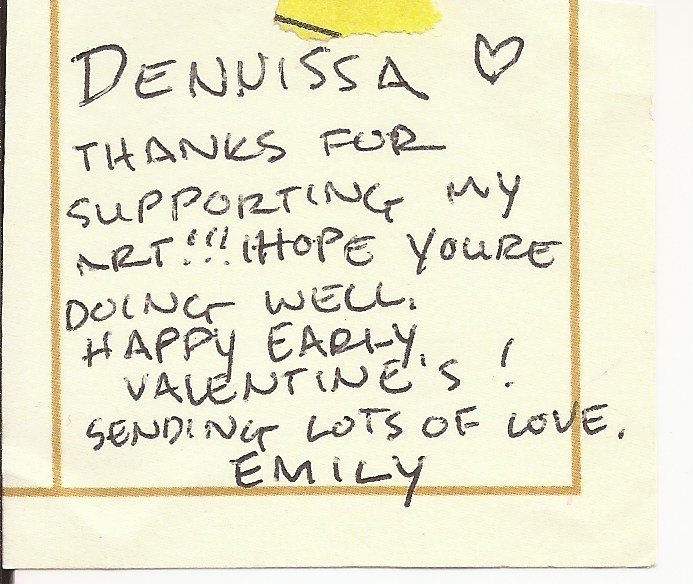 DENNISSA ♡
THANKS FOR
SUPPORTING MY
ART!!! I HOPE YOURE
DOING WELL.
HAPPY EARLY
VALENTINE'S!
SENDING LOTS OF LOVE.
EMILY